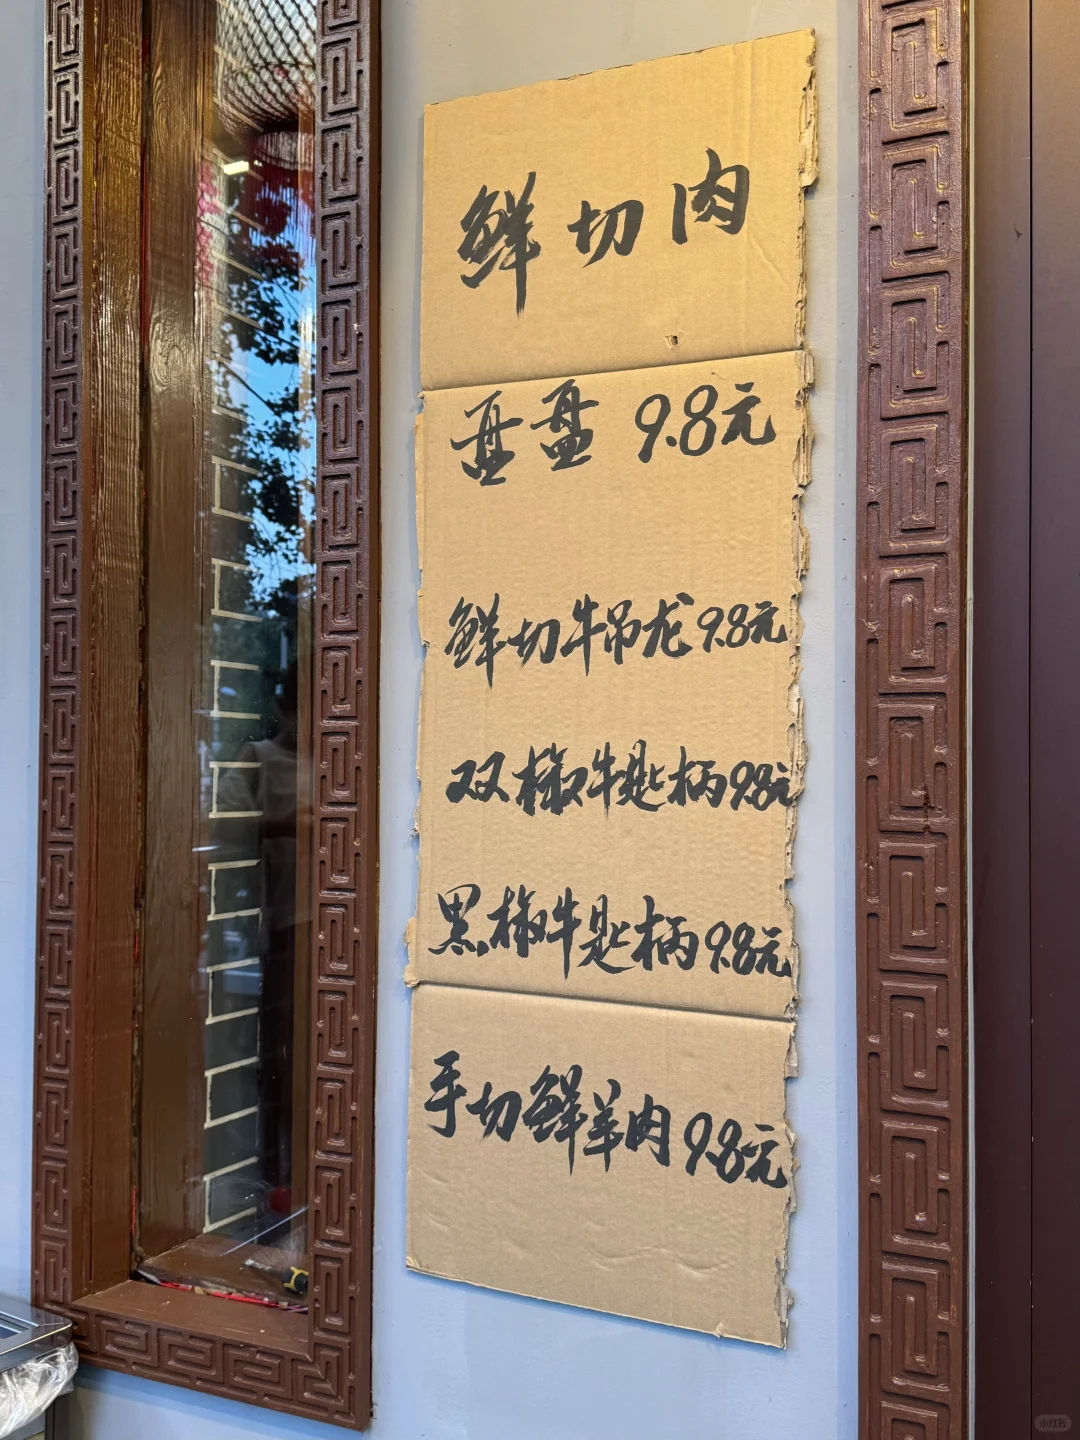 鲜切肉
盘盘 9.8元
鲜切牛吊龙9.8元
双椒牛匙柄9.8元
黑椒牛匙柄9.8元
手切鲜羊肉9.8元
小红书